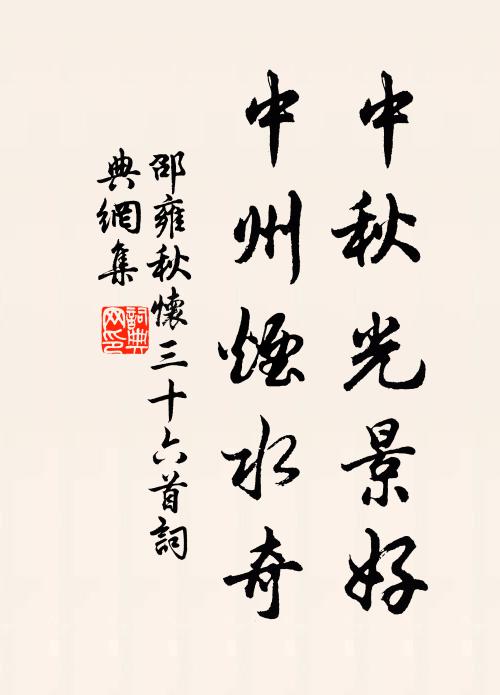 中秋光景好
中州煙水奇
邵雍秋懷三十六首詞
典網集
詞典
网印